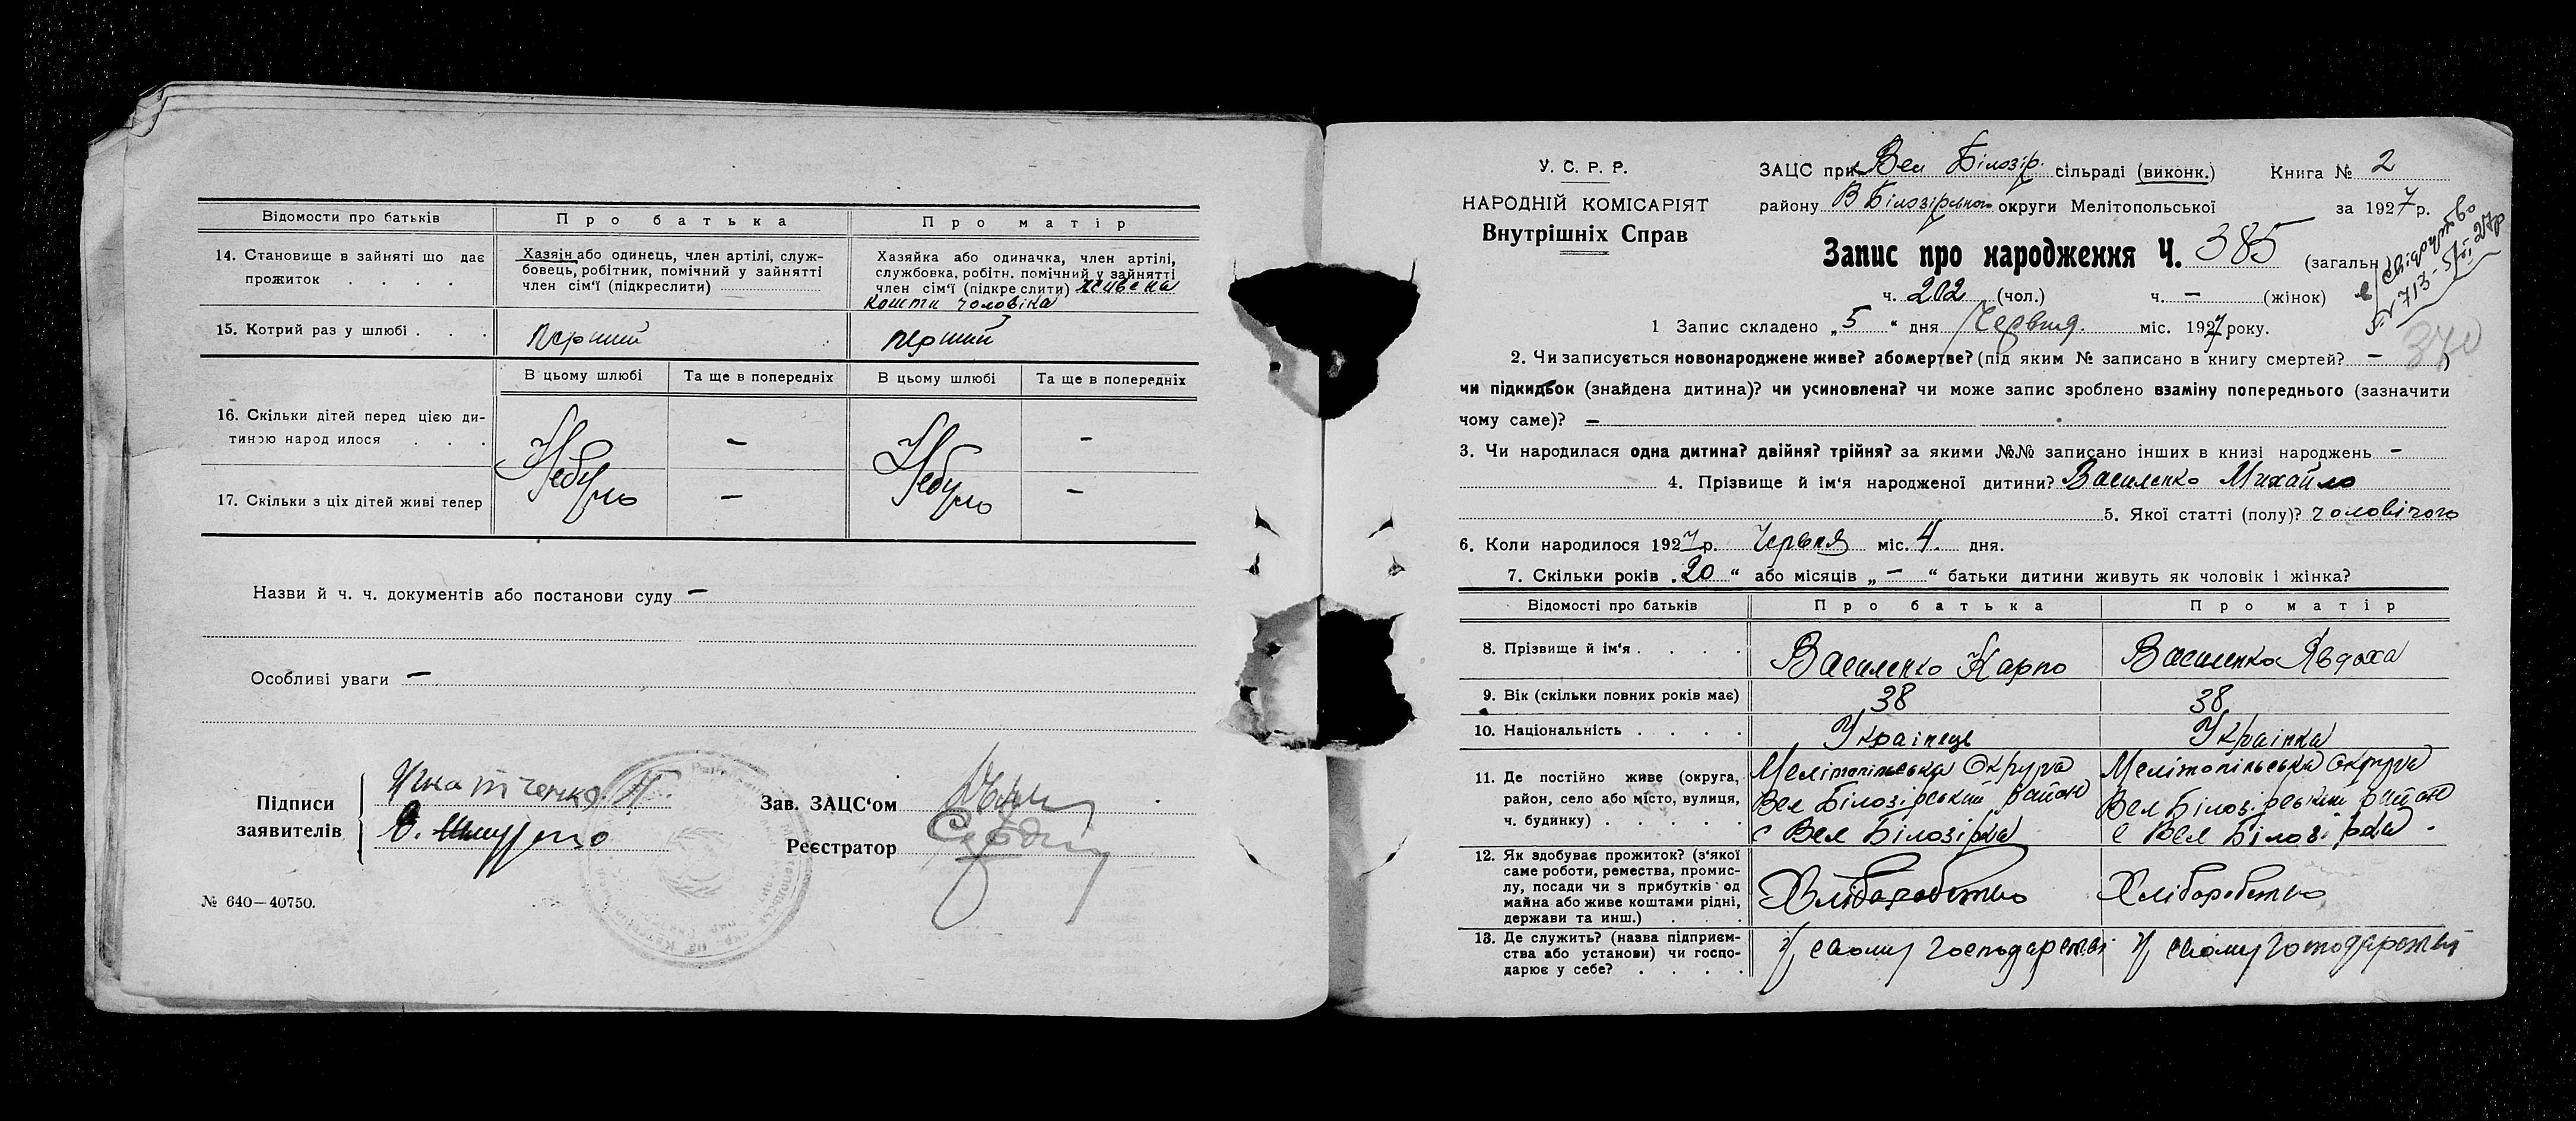 Відомости про батьків
Про батька
Про матір
14. Становище в зайняті що дає прожиток . . . .
Хазяїн або одинець, член артілі, служ-
бовець, робітник, помічний у зайнятті
член сім'ї (підкреслити)
Хазяйка або одиначка, член артілі,
службовка, робітн. помічний у зайнятті
член сім'ї (підкре слити) живе на
кошти чоловіка
15. Котрий раз у шлюбі . . .
перший
перший
В цьому шлюбі
Та ще в попередніх
В цьому шлюбі
Та ще в попередніх
16. Скільки дітей перед цією ди-
тиною народ илося . . .
Небуло
—
Небуло
—
17. Скільки з ціх дітей живі тепер
—
—
Назви й ч. ч. документів або постанови суду —
Особливі уваги —
Підписи
заявителів
Зав. ЗАЦС'ом
Реєстратор
№ 640—40750.
У. С. Р. Р.
НАРОДНІЙ КОМІСАРІЯТ
Внутрішніх Справ
ЗАЦС при Вел Білозір. сільраді (виконк.) Книга № 2
району В Білозірського округи Мелітопольської за 1927 р.
Запис про народження Ч. 385 (загальн
ч. 202 (чол.) ч. — (жінок)
свідоцтво
№ 713
370
1 Запис складено „5“ дня Червня міс. 1927 року.
2. Чи записується новонароджене живе? або мертве? (під яким № записано в книгу смертей? — )
чи підкидьок (знайдена дитина)? чи усиновлена? чи може запис зроблено взаміну попереднього (зазначити
чому саме)? —
3. Чи народилася одна дитина? двійня? трійня? за якими №№ записано інших в книзі народжень —
4. Прізвище й ім'я народженої дитини? Василенко Михайло
5. Якої статті (полу)? чоловічого
6. Коли народилося 1927 р. Червня міс. 4. дня.
7. Скільки років „20“ або місяців „—“ батьки дитини живуть як чоловік і жінка?
Відомості про батьків
Про батька
Про матір
8. Прізвище й ім'я . . . .
Василенко Карпо
Василенко Явдоха
9. Вік (скільки повних років має)
38
38
10. Національність . . . .
Українець
Українка
11. Де постійно живе (округа,
район, село або місто, вулиця,
ч. будинку) . . . . .
Мелітопільська Округа
Вел Білозірський район
с Вел Білозірка
Мелітопільська Округа
Вел Білозірський район
с Вел Білозірка .
12. Як здобуває прожиток? (з'якої
саме роботи, ремества, промис-
лу, посади чи з прибутків од
майна або живе коштами рідні,
держави та инш.) . . .
Хліборобство
Хліборобство
13. Де служить? (назва підприєм-
ства або установи) чи госпо-
дарює у себе? . . . .
У свому господарстві
У свому господарстві